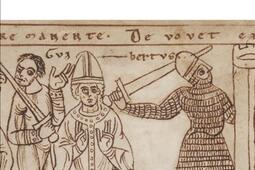 re manente. De vovet ex
Gui bertus.